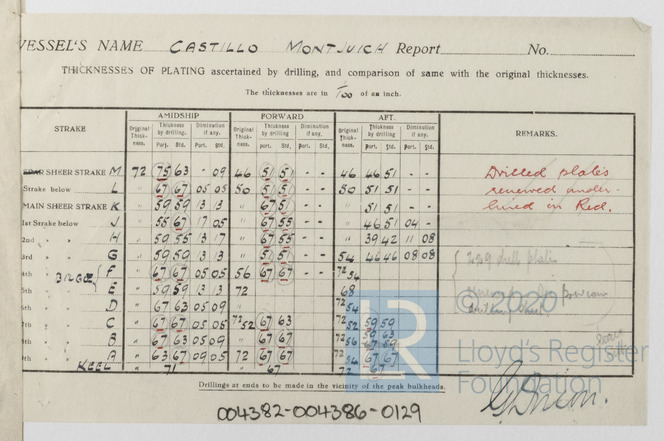 VESSEL'S NAME CASTILLO MONTJUICH Report No.
THICKNESSES OF PLATING ascertained by drilling, and comparison of same with the original thicknesses.
The thicknesses are in 1/100 of an inch.
STRAKE AMIDSHIP FORWARD AFT. REMARKS.
Original Thickness. Thickness by drilling. Diminution if any. Original Thickness. Thickness by drilling Diminution if any. Original Thickness. Thickness by drilling. Diminution if any.
Port. Std. Port. Std. Port. Std. Port. Std. Port. Std. Port. Std.
SHEER STRAKE M 72 75 63 - 09 46 51 51 - - 46 46 51 - - Drilled plates
Strake below L " 67 67 05 05 50 51 51 - - 50 51 51 - - renewed under-
MAIN SHEER STRAKE K " 59 59 13 13 " 67 51 " 51 51 - - lined in Red.
1st Strake below J " 55 67 17 05 " 67 55 " 46 51 04 -
2nd " " H " 59 55 13 17 " 67 55 " 39 42 11 08
3rd " " G " 59 59 13 13 " 51 51 - - 54 46 46 08 08
4th " " BILGE F " 67 67 05 05 56 67 67 - - 72 56
5th " " E " 59 59 13 13 72 68
" " D " 67 63 05 09 72 54
7th " " C " 67 67 05 05 72 52 67 63 72 52 59 59
" " B " 67 63 05 09 " 67 67 72 56 59 63 67 59
" " A " 63 67 09 05 72 67 67 72 56 67 67
KEEL " 71 " 67 72 67
Drillings at ends to be made in the vicinity of the peak bulkheads.
© 2020
Lloyd's Register
Foundation
004382-004386-0129